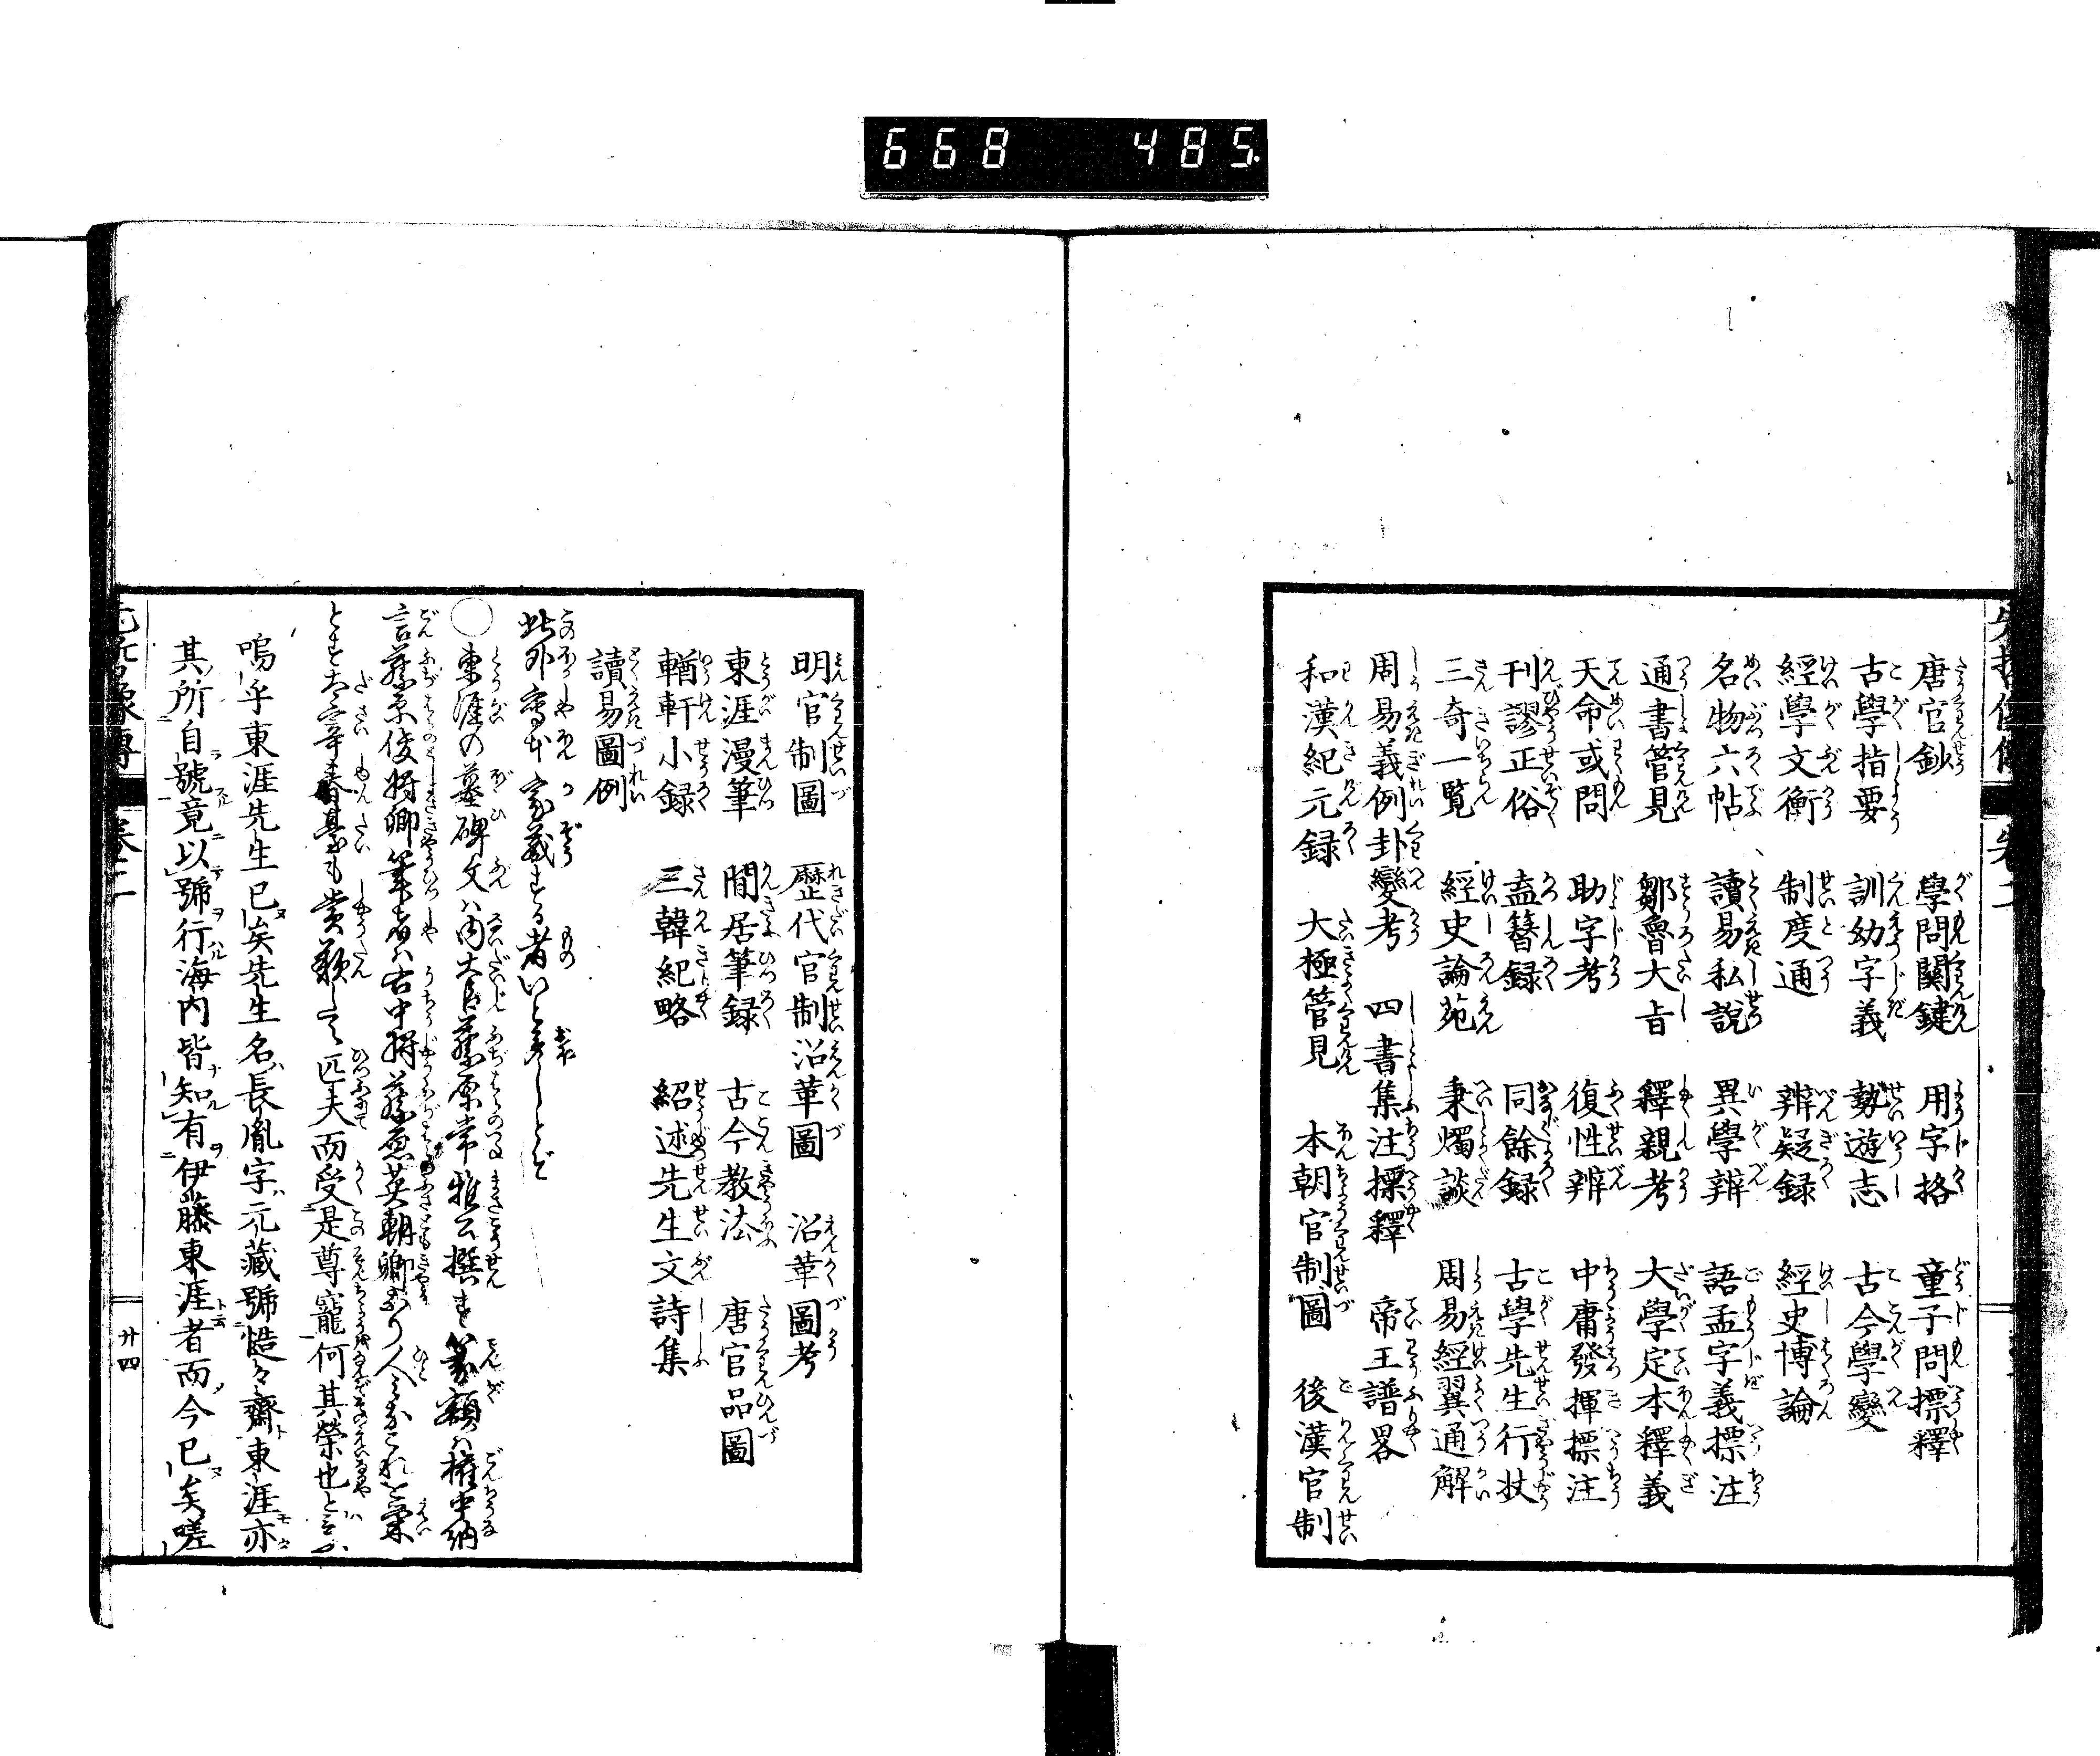 668 485.
唐官鈔 學問關鍵 用字格 童子問標釋
古學指要 訓幼字義 勢遊志 古今學變
經學文衡 制度通 辨疑録 經史博論
名物六帖 讀易私說 異學辨 語孟字義標注
通書管見 鄒魯大旨 釋親考 大學定本釋義
天命或問 助字考 復性辨 中庸發揮標注
刊謬正俗 盍簪録 同餘録 古學先生行狀
三奇一覧 經史論苑 秉燭談 周易經翼通解
周易義例卦變考 四書集注標釋 帝王譜畧
和漢紀元録 大極管見 本朝官制圖 後漢官制
明官制圖 歴代官制沿革圖 沿革圖考
東涯漫筆 間居筆録 古今教法 唐官品圖
輶軒小録 三韓紀略 紹述先生文詩集
讀易圖例
此外寫本家蔵する者いと多しとぞ
○東涯の墓碑文ハ内大臣藤原常雅公撰す篆額ハ權中納
言藤原俊将卿筆者ハ右中将藤原英朝卿なり人みなこれを榮
とす太宰春臺も賞歎して匹夫而受是尊寵何其榮也といふ
嗚乎東涯先生已矣先生名長胤字元藏號慥々齋東涯亦
其所自號竟以號行海内皆知有伊藤東涯者而今已矣嗟
卷二
廿四